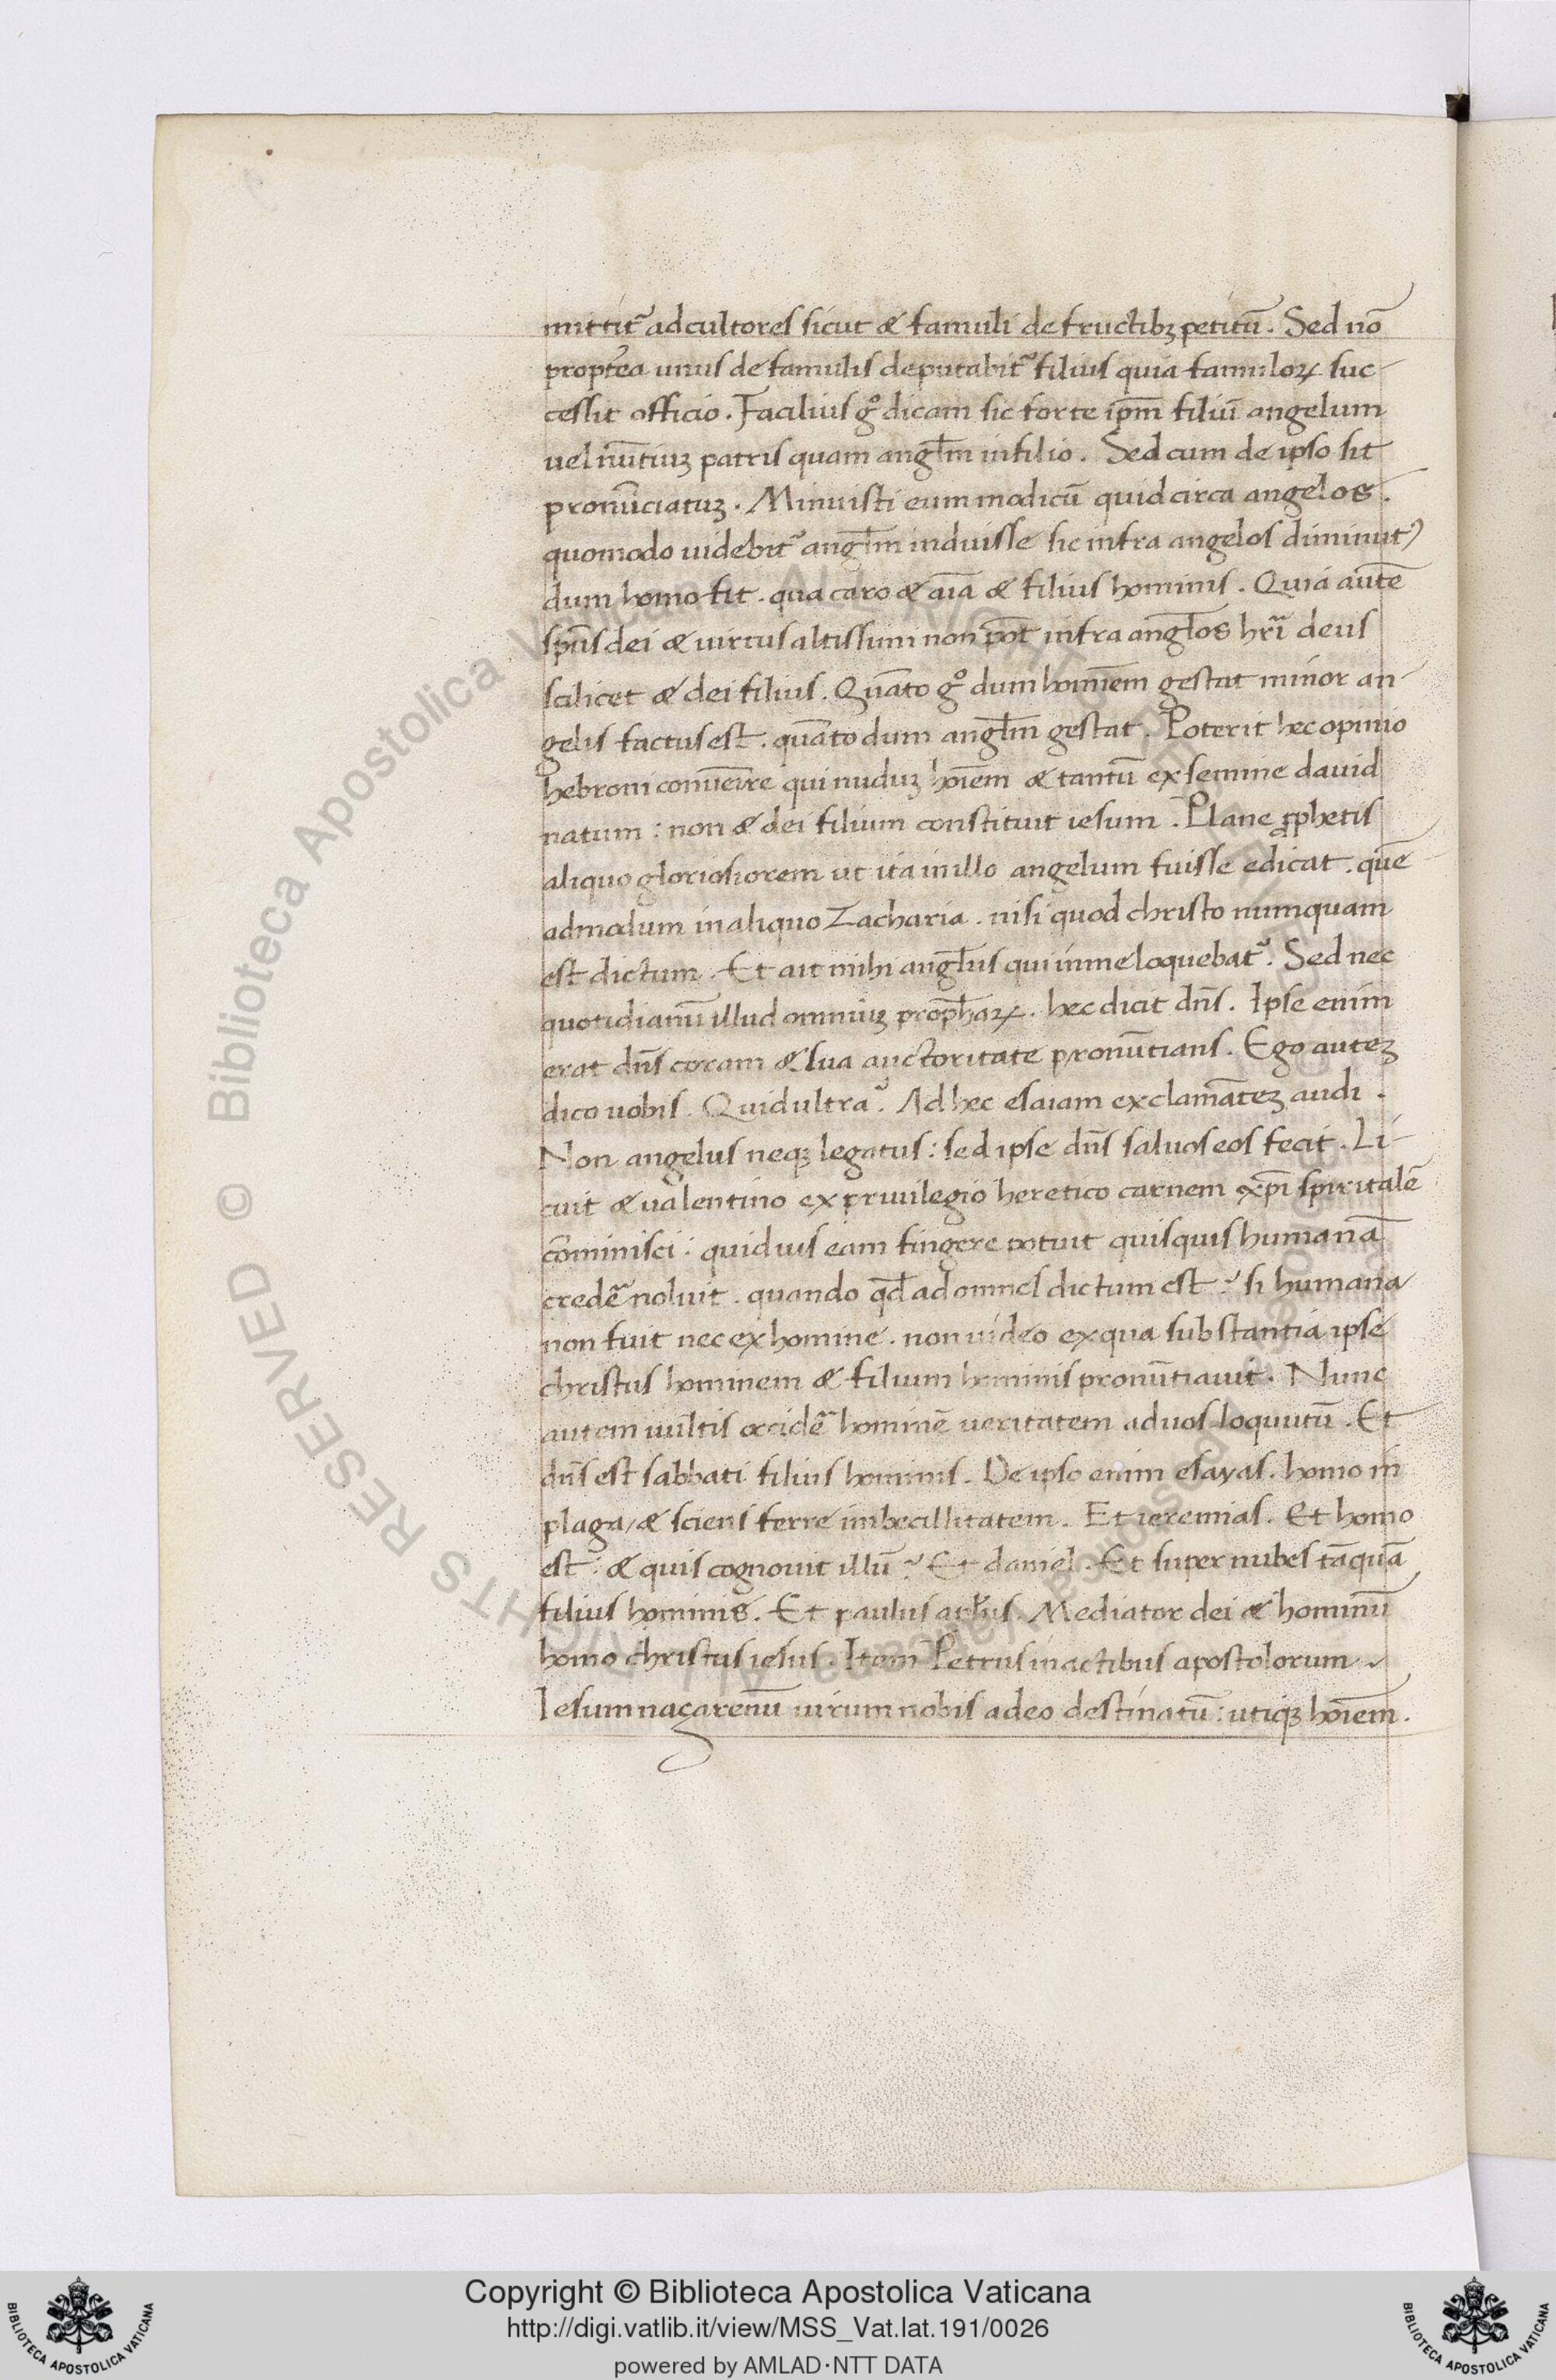 mittit᷑ ad cultores sicut & famuli de fructibꝫ petitū. Sed nō
propt̄ea unus de famulis deputabit᷑ filius quia famuloꝝ suc-
cessit officio. Facilius gͦ dicam sic forte ip̄m filiū angelum
uel nūtiuꝫ patris quam angl̄m in filio. Sed cum de ipso sit
pronūciatuꝫ. Minuisti eum modicū quid circa angelos.
quomodo uidebit᷑ angl̄m induisse sic infra angelos diminutꝰ
dum homo fit. qua caro & aīa & filius hominis. Quia autē
sp̄us dei & uirtus altissimi non pōt infra angl̄os hr̄i deus
scilicet & dei filius. Quāto gͦ dum homīem gestat minor an-
gelis factus est. quāto dum angl̄m gestat. Poterit hec opinio
hebroni conuēire qui nuduꝫ hoīem & tantū ex semine dauid
natum: non & dei filium constituit iesum. Plane ꝓphetis
aliquo gloriosiorem ut ita in illo angelum fuisse edicat. quē
admodum in aliquo Zacharia. nisi quod christo numquam
est dictum. Et ait mihi angl̄us qui in me loquebat᷑. Sed nec
quotidianū illud omniuꝫ proph̄aꝝ. hec dicit dn̄s. Ipse enim
erat dn̄s coram & sua auctoritate pronūtians. Ego auteꝫ
dico uobis. Quid ultra? Ad hec esaiam exclamāteꝫ audi.
Non angelus neqꝫ legatus: sed ipse dn̄s saluos eos fecit. Li-
cuit & ualentino ex priuilegio heretico carnem xp̄i spiritalē
cōminisci: quiduis eam fingere potuit quisquis humanā
credē noluit. quando qd̄ ad omnes dictum est? si humana
non fuit nec ex homine. non uideo ex qua substantia ipse
christus hominem & filium hominis pronūtiauit. Nunc
autem uultis occidē hominē ueritatem ad uos loquutū. Et
dn̄s est sabbati filius hominis. De ipso enim esayas. homo in
plaga / & sciens ferre imbecillitatem. Et ieremias. Et homo
est: & quis cognouit illū? Et daniel. Et super nubes tāquā
filius hominis. Et paulus apl̄us. Mediator dei & hominū
homo christus iesus. Item Petrus in actibus apostolorum
Iesum naçarenū uirum nobis adeo destinatū: utiqꝫ hoīem.
© Biblioteca Apostolica Vaticana
ALL RIGHTS RESERVED
Copyright © Biblioteca Apostolica Vaticana
http://digi.vatlib.it/view/MSS_Vat.lat.191/0026
powered by AMLAD·NTT DATA
BIBLIOTECA APOSTOLICA VATICANA
BIBLIOTECA APOSTOLICA VATICANA